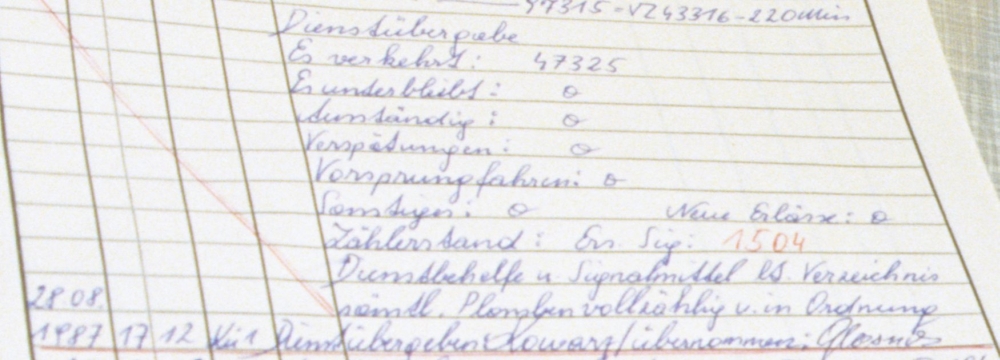 47315 - VZ 43316 - 220 Min
Dienstübergabe
Es verkehrt: 47325
Es unterbleibt: o
Ausständig: o
Verspätungen: o
Vorsprungfahren: o
Sonstiges: o Neue Erlässe: o
Zählerstand: Ers. Sig: 1504
Dienstbehelfe u Signalmittel lt. Verzeichnis
28.08. sämtl. Plomben vollzählig u. in Ordnung
1987 17 12 Dienst übergeben: / übernommen: